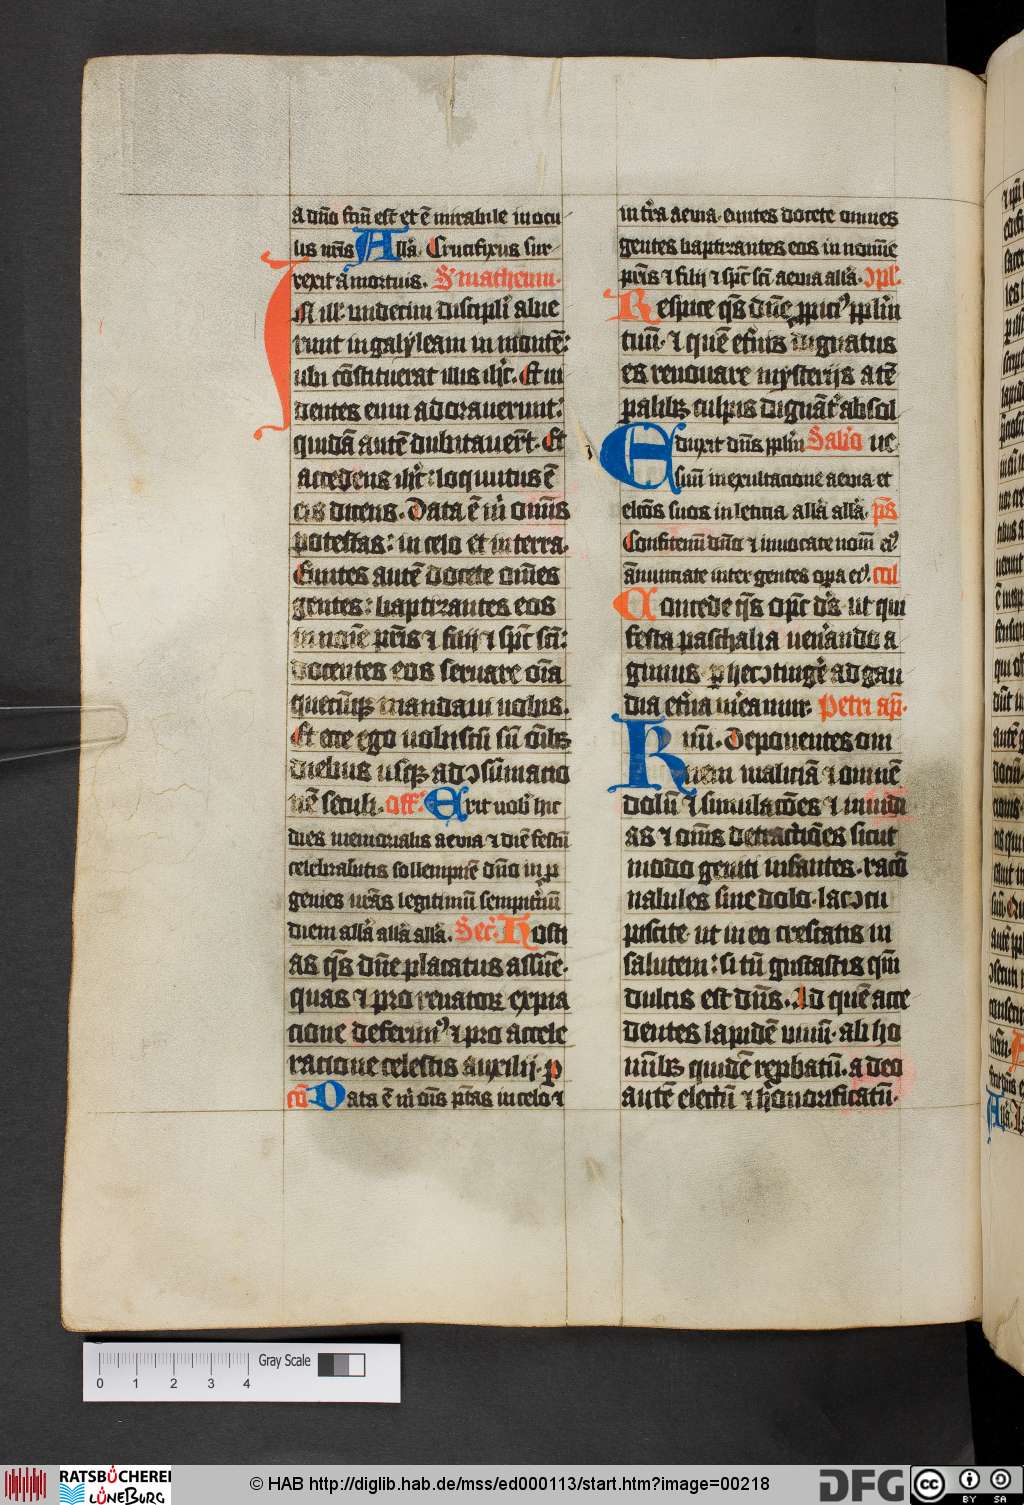 a dño fcm̃ est et ē mirabile in ocu
lis nr̃is Alla̾ Crucifixus sur
rexit a mortuis. S' matheum.
In ill' undecim discipli̾ abie
runt in galyleam in montē:
ubi cōstituerat illis ih̾c. Et vi
dentes eum adorauerunt:
quidā autē dubitauer̄t. Et
accedens ih̾c: loquutus ē
eis dicens. Data ē m̾ omīs
potestas: in celo et in terra.
Euntes autē docete om̄es
gentes: baptizantes eos
in noīe pr̄is ⁊ filij ⁊ sp̄c sc̄i:
docentes eos seruare oīa
quecūqꝫ mandaui uobis.
Et ecce ego uobiscū sū oībꝫ
diebus usqꝫ ad ↄsūmacio
nē seculi. Off̾ Erit uob̾ hic
dies memorialis aeuia ⁊ diē festū
celebrabitis sollempnē dño in ꝓ
genies ur̄as legitimū sempit̾nū
diem alla̾ alla̾ alla̾. Sec̾. Hosti
as qs̄ dñe placatus assūe.
quas ⁊ pro renatoꝝ expia
cione deferim⁹ ⁊ pro accele
racione celestis auxilij. ꝑ
Cō Data ē m̾ oīs p̄tas in celo ⁊
in t̾ra aeuia. euntes docete omnes
gentes baptizantes eos in nomīe
pr̄is ⁊ filij ⁊ sp̄c sc̄i aeuia alla̾. ↄpl̾.
Respice qs̄ dñe ppici⁹ pplm̄
tuū. ⁊ quē et̾nis dignatus
es renouare mysterijs a tē
palibꝫ culpis dignāt̾ absol
Eduxit dñs pplm̄ Sab̾o ue
suū in exultacione aeuia et
elcōs suos in leticia alla̾ alla̾. ps̄
Confitemī dño ⁊ inuocate nom̄ ei⁹
ānunciate inter gentes opa ei⁹. Col
Concede qs̄ opc̄ ds̄. ut qui
festa paschalia uen̾ando a
gimus. ꝑ hec ↄtinge̾ ad gau
dia et̾na m̾eamur. Petri ap̄.
Kmī. Deponentes om
nem maliciā ⁊ omnē
dolū ⁊ simulacōes ⁊ inuidi
as ⁊ om̄s detractiōes sicut
modo geniti infantes. racō
nabiles sine dolo. lac ↄcu
piscite. ut in eo crescatis in
salutem: si tn̄ gustastis qm̄
dulcis est dñs. Ad quē acce
dentes lapidē uiuū. ab ho
mībꝫ quidē repbatū. a deo
autē electū ⁊ honorificatū.
0 1 2 3 4 Gray Scale
RATSBÜCHEREI LÜNEBURG
© HAB http://diglib.hab.de/mss/ed000113/start.htm?image=00218
DFG
CC BY SA